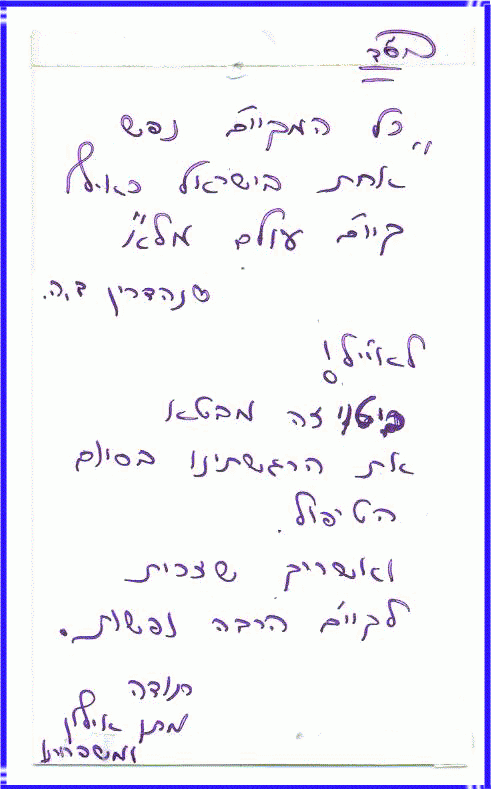 בס"ד
"כל המקיים נפש
אחת בישראל כאילו
קיים עולם מלא"
סנהדרין ד,ה.
לאייל!
ביטוי זה מבטא
את הרגשתינו בסיום
הטיפול.
ואשריך שזכית
לקיים הרבה נפשות.
תודה
מתן
ומשפחתו